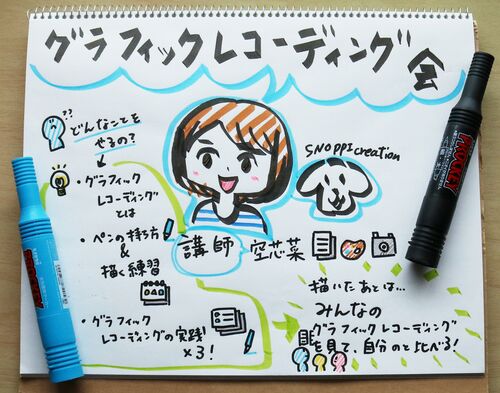 グラフィックレコーディング会
??
どんなことを
やるの?
・グラフィック
レコーディング
とは
・ペンの持ち方
&
描く練習
・グラフィック
レコーディングの実践!
×3!
SNOPPI creation
講師 空芯菜
描いたあとは…
みんなの
グラフィックレコーディング
を見て、自分のと比べる!
PROCKEY
PROCKEY